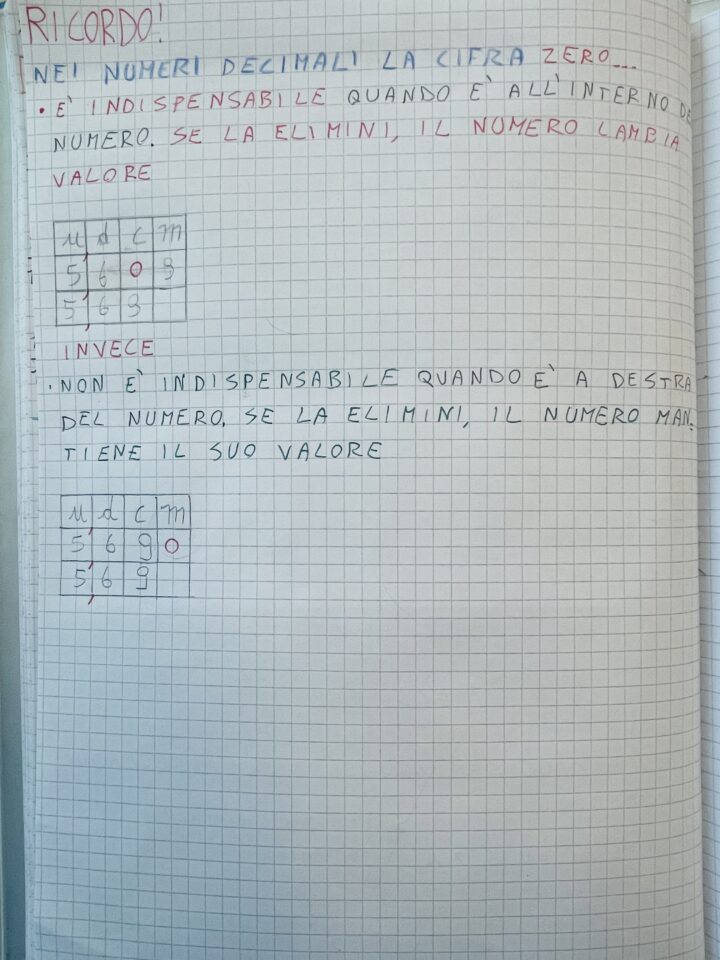 RICORDO!
NEI NUMERI DECIMALI LA CIFRA ZERO...
• È INDISPENSABILE QUANDO È ALL'INTERNO DE
NUMERO. SE LA ELIMINI, IL NUMERO CAMBIA
VALORE
u d c m
5, 6 0 9
5, 6 9
INVECE
• NON È INDISPENSABILE QUANDO È A DESTRA
DEL NUMERO. SE LA ELIMINI, IL NUMERO MAN-
TIENE IL SUO VALORE
u d c m
5, 6 9 0
5, 6 9